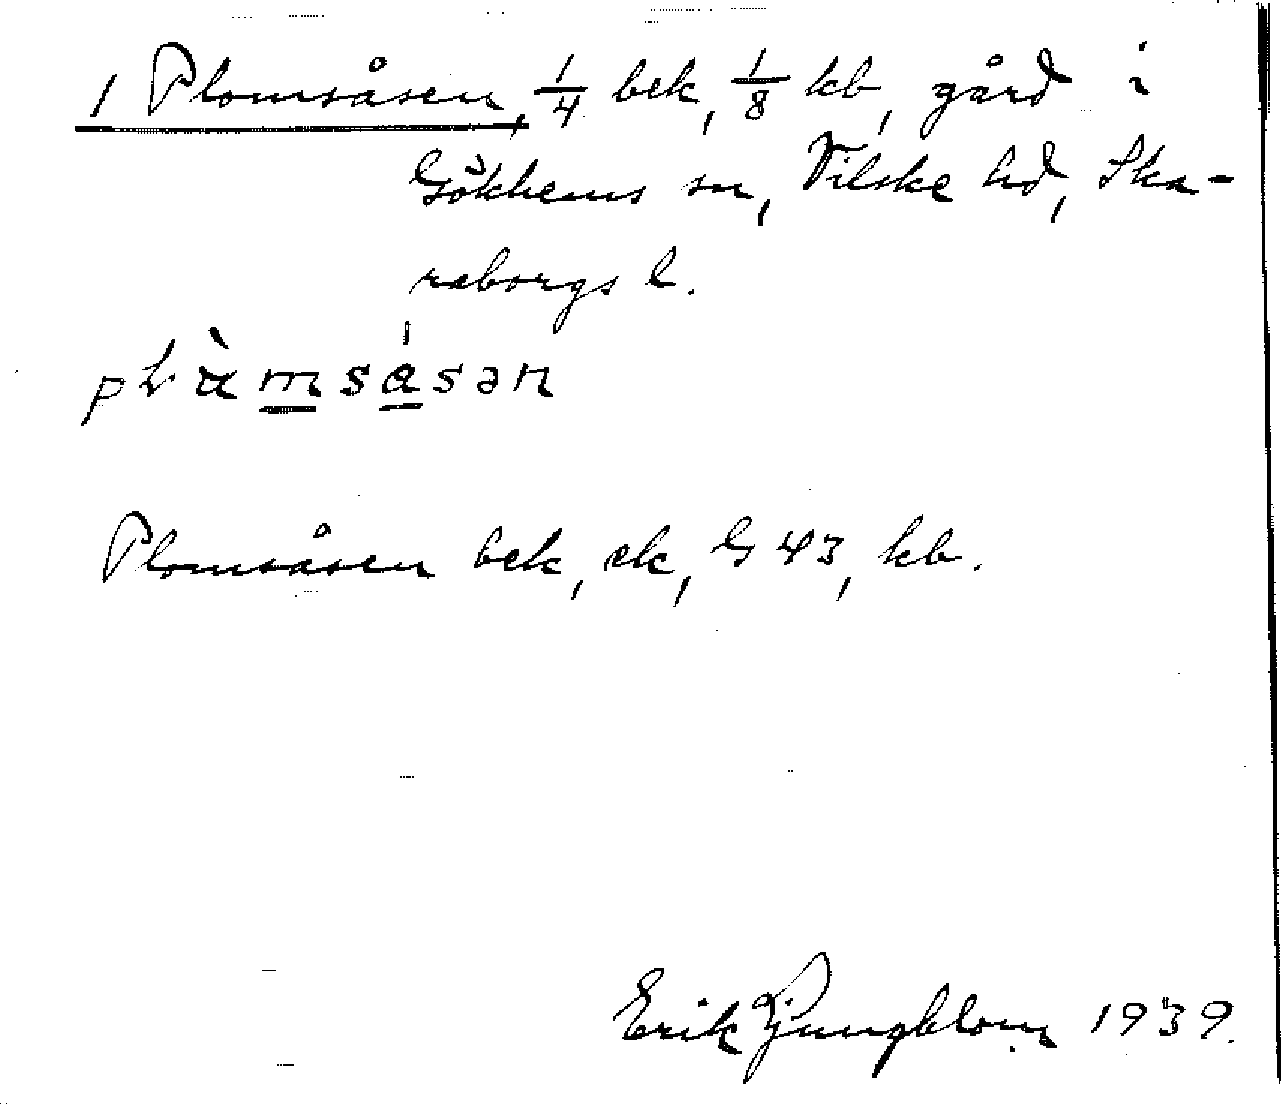 1 Plomsåsen, 1/4 bek, 1/8 kb, gård i
Gökhems sn, Vilske hd, Ska-
raborgs l.
Plomsåsen bek, ek, G 43, kb.
Erik Ljungblom 1939.